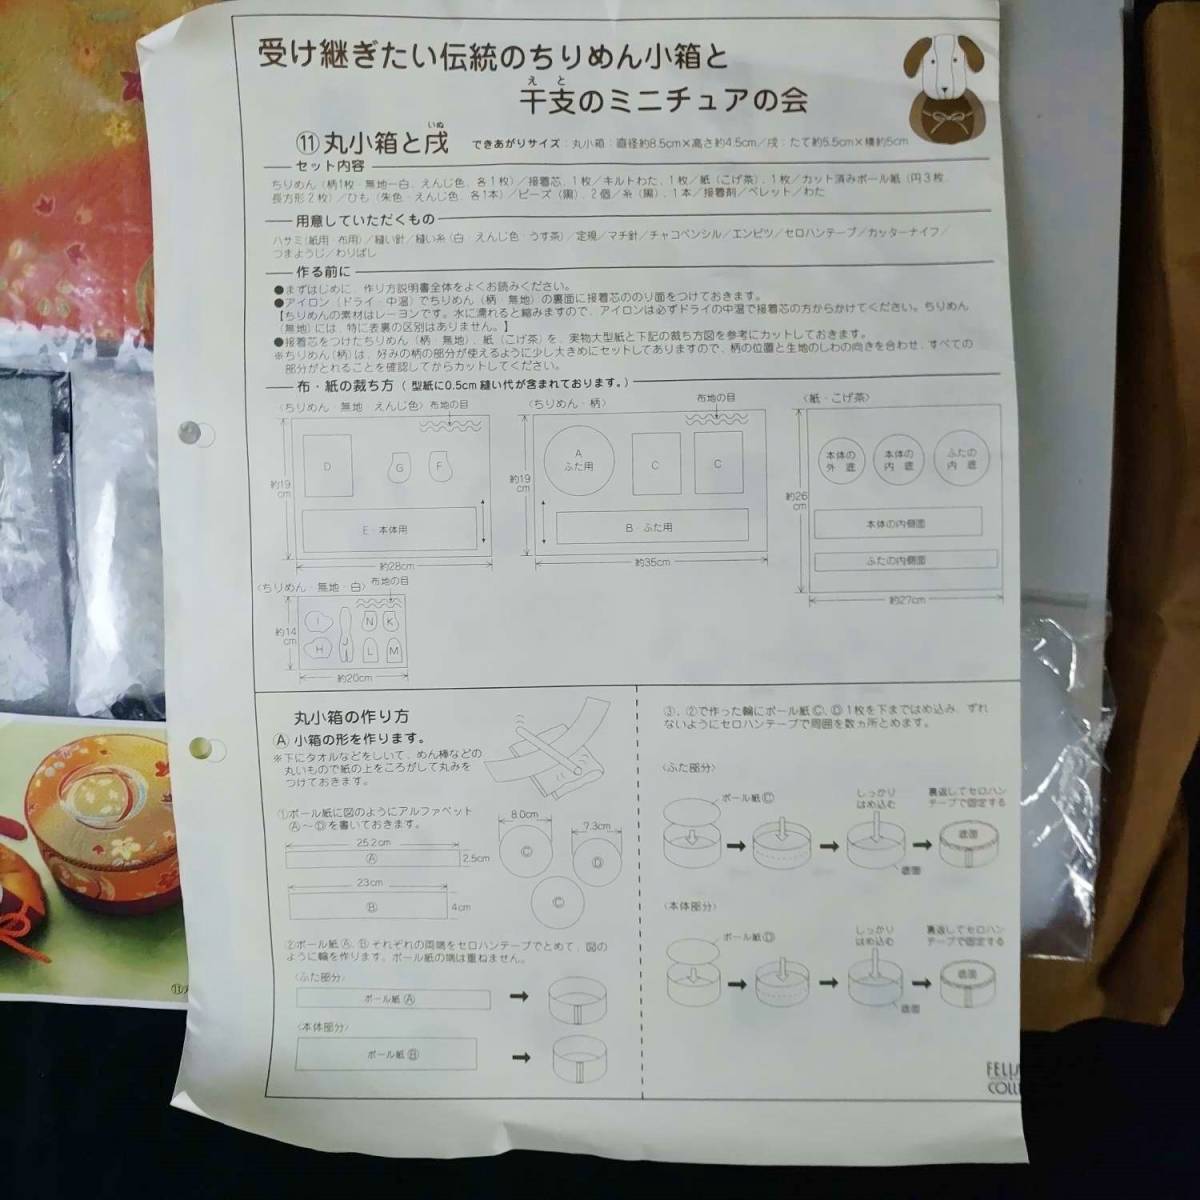 受け継ぎたい伝統のちりめん小箱と
えと
干支のミニチュアの会
いぬ
⑪丸小箱と戌 できあがりサイズ:丸小箱:直径約8.5cm×高さ約4.5cm/戌:たて約5.5cm×横約5cm
セット内容
ちりめん(柄1枚・無地ー白、えんじ色、各1枚)/接着芯、1枚/キルトわた、1枚/紙(こげ茶)、1枚/カット済みボール紙(円3枚、
長方形2枚)/ひも(朱色・えんじ色、各1本)/ビーズ(黒)、2個/糸(黒)、1本/接着剤/ペレット/わた
用意していただくもの
ハサミ(紙用・布用)/縫い針/縫い糸(白・えんじ色・うす茶)/定規/マチ針/チャコペンシル/エンピツ/セロハンテープ/カッターナイフ/
つまようじ/わりばし
作る前に
●まずはじめに、作り方説明書全体をよくお読みください。
●アイロン(ドライ・中温)でちりめん(柄・無地)の裏面に接着芯ののり面をつけておきます。
【ちりめんの素材はレーヨンです。水に濡れると縮みますので、アイロンは必ずドライの中温で接着芯の方からかけてください。ちりめん
(無地)には、特に表裏の区別はありません。】
●接着芯をつけたちりめん(柄・無地)、紙(こげ茶)を、実物大型紙と下記の裁ち方図を参考にカットしておきます。
※ちりめん(柄)は、好みの柄の部分が使えるように少し大きめにセットしてありますので、柄の位置と生地のしわの向きを合わせ、すべての
部分がとれることを確認してからカットしてください。
布・紙の裁ち方(型紙に0.5cm縫い代が含まれております。)
〈ちりめん・無地・えんじ色〉布地の目
D
G
F
E・本体用
約19cm
約28cm
〈ちりめん・柄〉
布地の目
A
ふた用
C
C
B・ふた用
約19cm
約35cm
〈紙・こげ茶〉
本体の
外底
本体の
内底
ふたの
内底
本体の内側面
ふたの内側面
約26cm
約27cm
〈ちりめん・無地・白〉布地の目
I
J
N
K
H
L
M
約14cm
約20cm
丸小箱の作り方
Ⓐ小箱の形を作ります。
※下にタオルなどをしいて、めん棒などの
丸いもので紙の上をころがして丸みを
つけておきます。
①ボール紙に図のようにアルファベット
Ⓐ～Ⓓを書いておきます。
25.2cm
Ⓐ
2.5cm
23cm
Ⓑ
4cm
8.0cm
Ⓒ
7.3cm
Ⓓ
Ⓒ
②ボール紙Ⓐ、Ⓑそれぞれの両端をセロハンテープでとめて、図の
ように輪を作ります。ボール紙の端は重ねません。
〈ふた部分〉
ボール紙Ⓐ
〈本体部分〉
ボール紙Ⓑ
③、②で作った輪にボール紙Ⓒ、Ⓓ1枚を下まではめ込み、ずれ
ないようにセロハンテープで周囲を数ヵ所とめます。
〈ふた部分〉
ボール紙Ⓒ
しっかり
はめ込む
裏返してセロハン
テープで固定する
底面
底面
〈本体部分〉
ボール紙Ⓓ
しっかり
はめ込む
裏返してセロハン
テープで固定する
底面
底面
FELIS
COLL
⑪